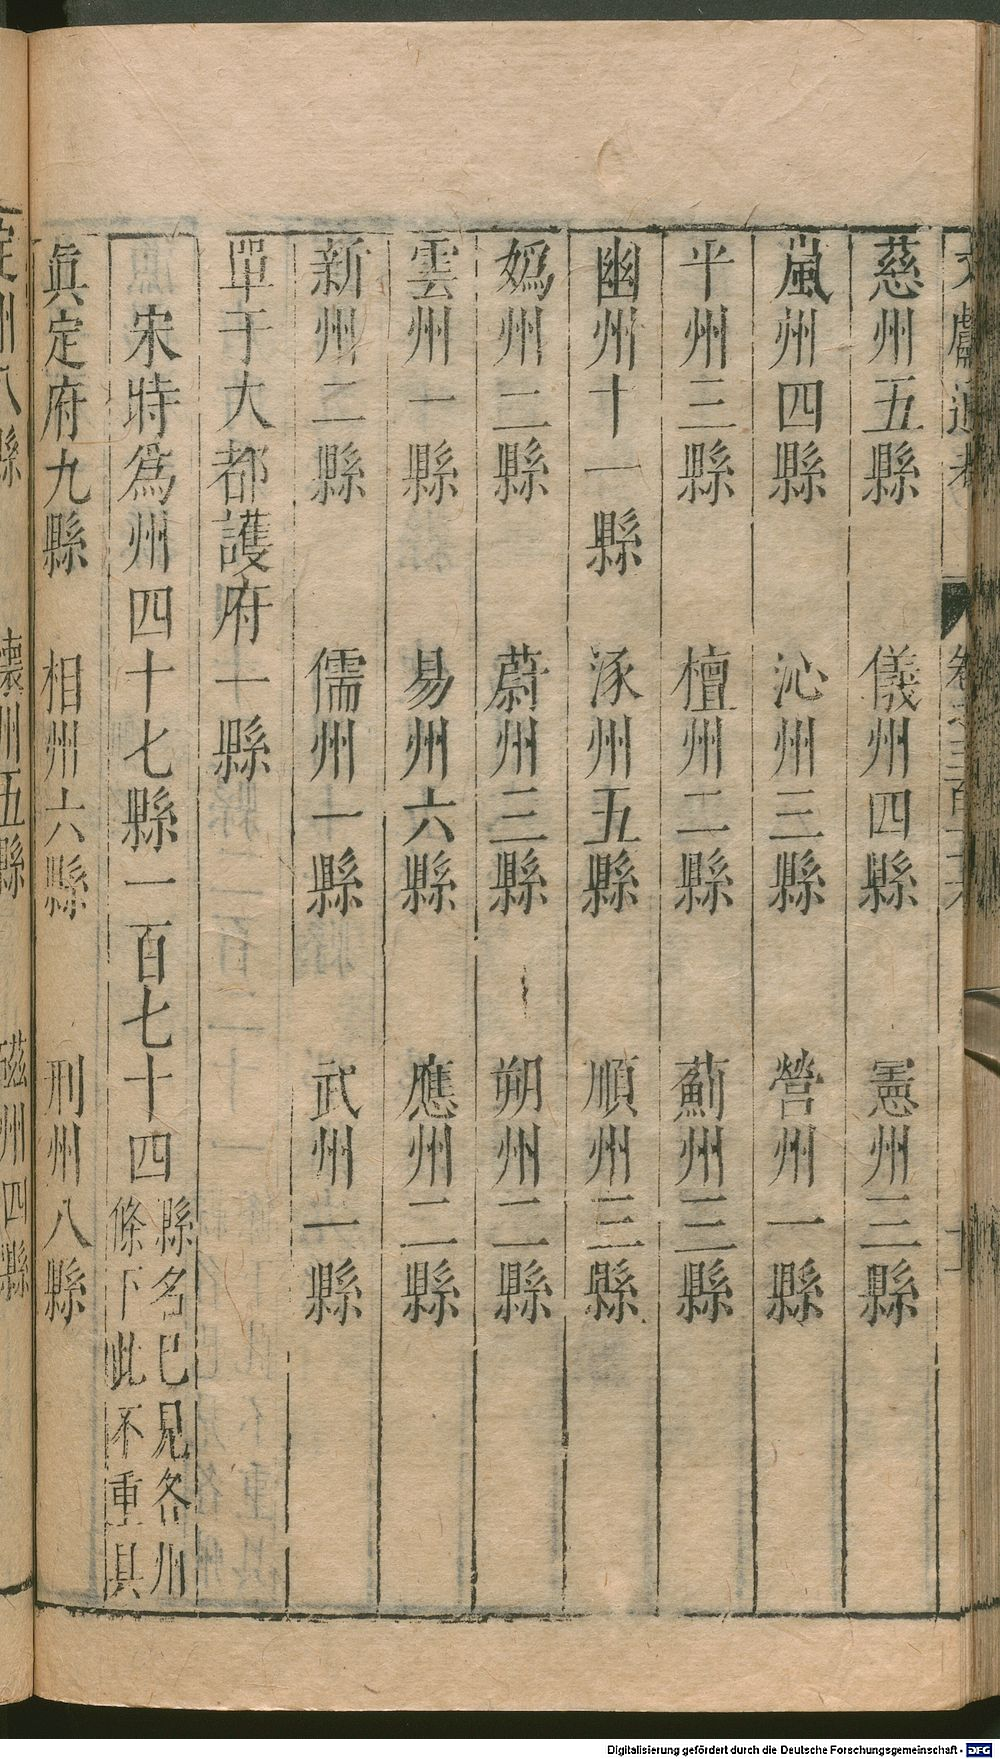 文獻通考 卷之三百十六
慈州五縣 儀州四縣 憲州三縣
嵐州四縣 沁州三縣 營州一縣
平州三縣 檀州二縣 薊州三縣
幽州十一縣 涿州五縣 順州三縣
媯州二縣 蔚州三縣 朔州二縣
雲州一縣 易州六縣 應州二縣
新州二縣 儒州一縣 武州一縣
單于大都護府一縣
宋時爲州四十七縣一百七十四
縣名已見各州
條下此不重具
眞定府九縣 相州六縣 刑州八縣
定州八縣 懷州五縣 磁州四縣
Digitalisierung gefördert durch die Deutsche Forschungsgemeinschaft - DFG